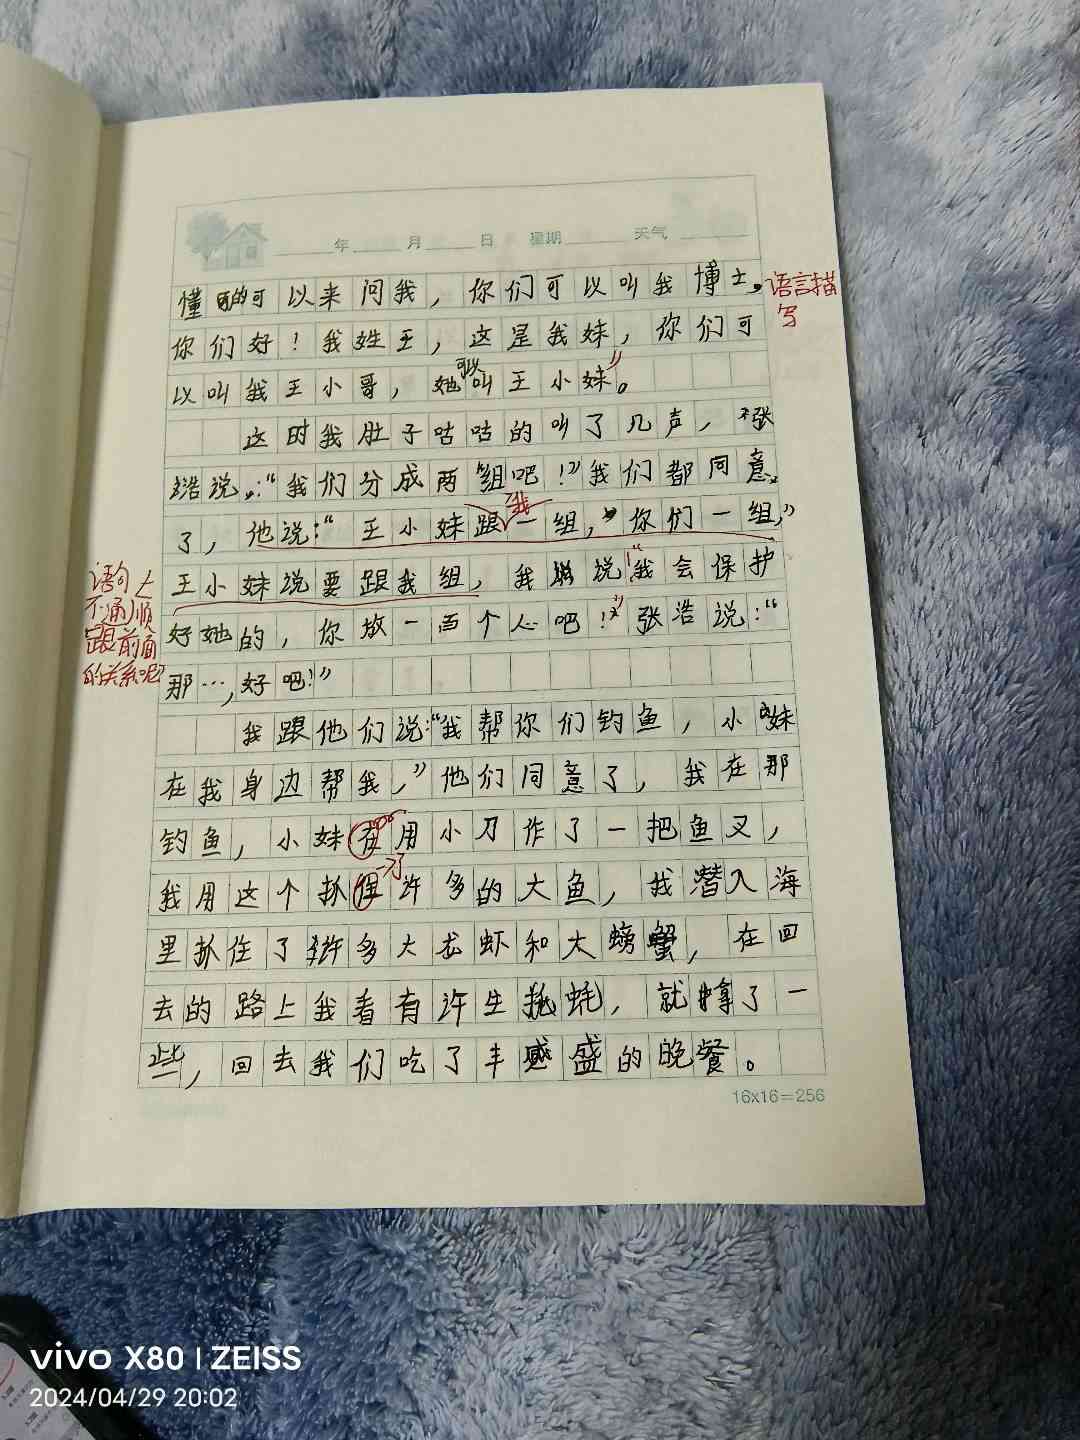 年 月 日 星期 天气
懂的可以来问我，你们可以叫我博士。
语言描写
你们好！我姓王，这是我妹，你们可
以叫我王小哥，她可以叫王小妹”。
这时我肚子咕咕的叫了几声，张
浩说：“我们分成两组吧！”我们都同意
了，他说：“王小妹跟我一组，你们一组，”
王小妹说要跟我组，我说！“我会保护
好她的，你放一百个心吧！”张浩说：“
那…，好吧！”
语句
不通顺
跟前面
的关系呢
我跟他们说：“我帮你们钓鱼，小妹
在我身边帮我，”他们同意了，我在那
钓鱼，小妹在用小刀作了一把鱼叉，
我用这个抓住了许多的大鱼，我潜入海
里抓住了许多大龙虾和大螃蟹，在回
去的路上我看有许生蚝，就拿了一
些，回去我们吃了丰盛的晚餐。
16x16=256
vivo X80 | ZEISS
2024/04/29 20:02